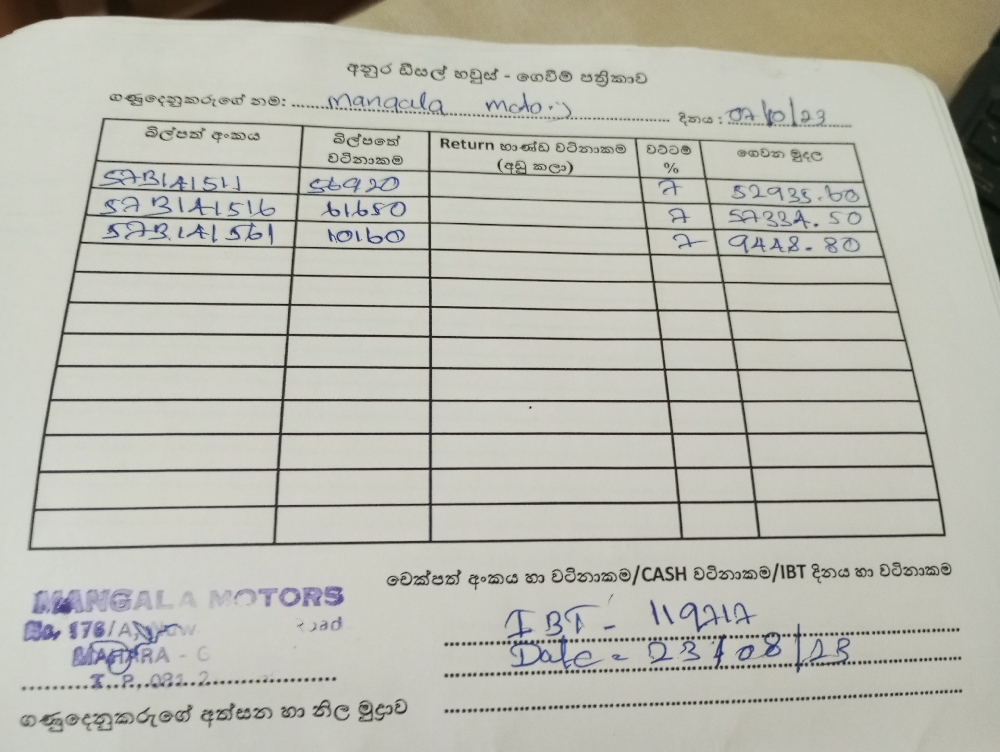 අනුර ඩීසල් හවුස් - ගෙවීම් පත්‍රිකාව
ගණුදෙනුකරුගේ නම: Mangala motors දිනය: 07/10/23
බිල්පත් අංකය බිල්පතේ වටිනාකම Return භාණ්ඩ වටිනාකම (අඩු කලා) වට්ටම් % ගෙවන මුදල
573141511 56920 7 52935.60
573141516 61650 7 57334.50
573141561 10160 7 9448.80
චෙක්පත් අංකය හා වටිනාකම/CASH වටිනාකම/IBT දිනය හා වටිනාකම
MANGALA MOTORS
No. 176/A, Road
MAHARA -
IBT - 119717
Date = 23/08/23
ගණුදෙනුකරුගේ අත්සන හා නිල මුද්‍රාව